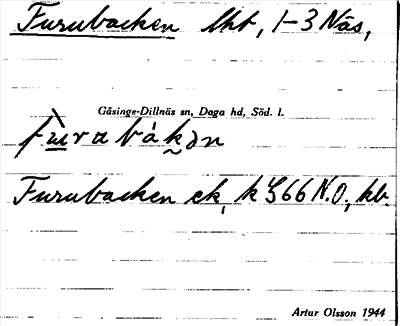 Furubacken lht, 1-3 Näs,
Gåsinge-Dillnäs sn, Daga hd, Söd. l.
fùrabákən
Furubacken ek, k 566 N.O., hb.
Artur Olsson 1944